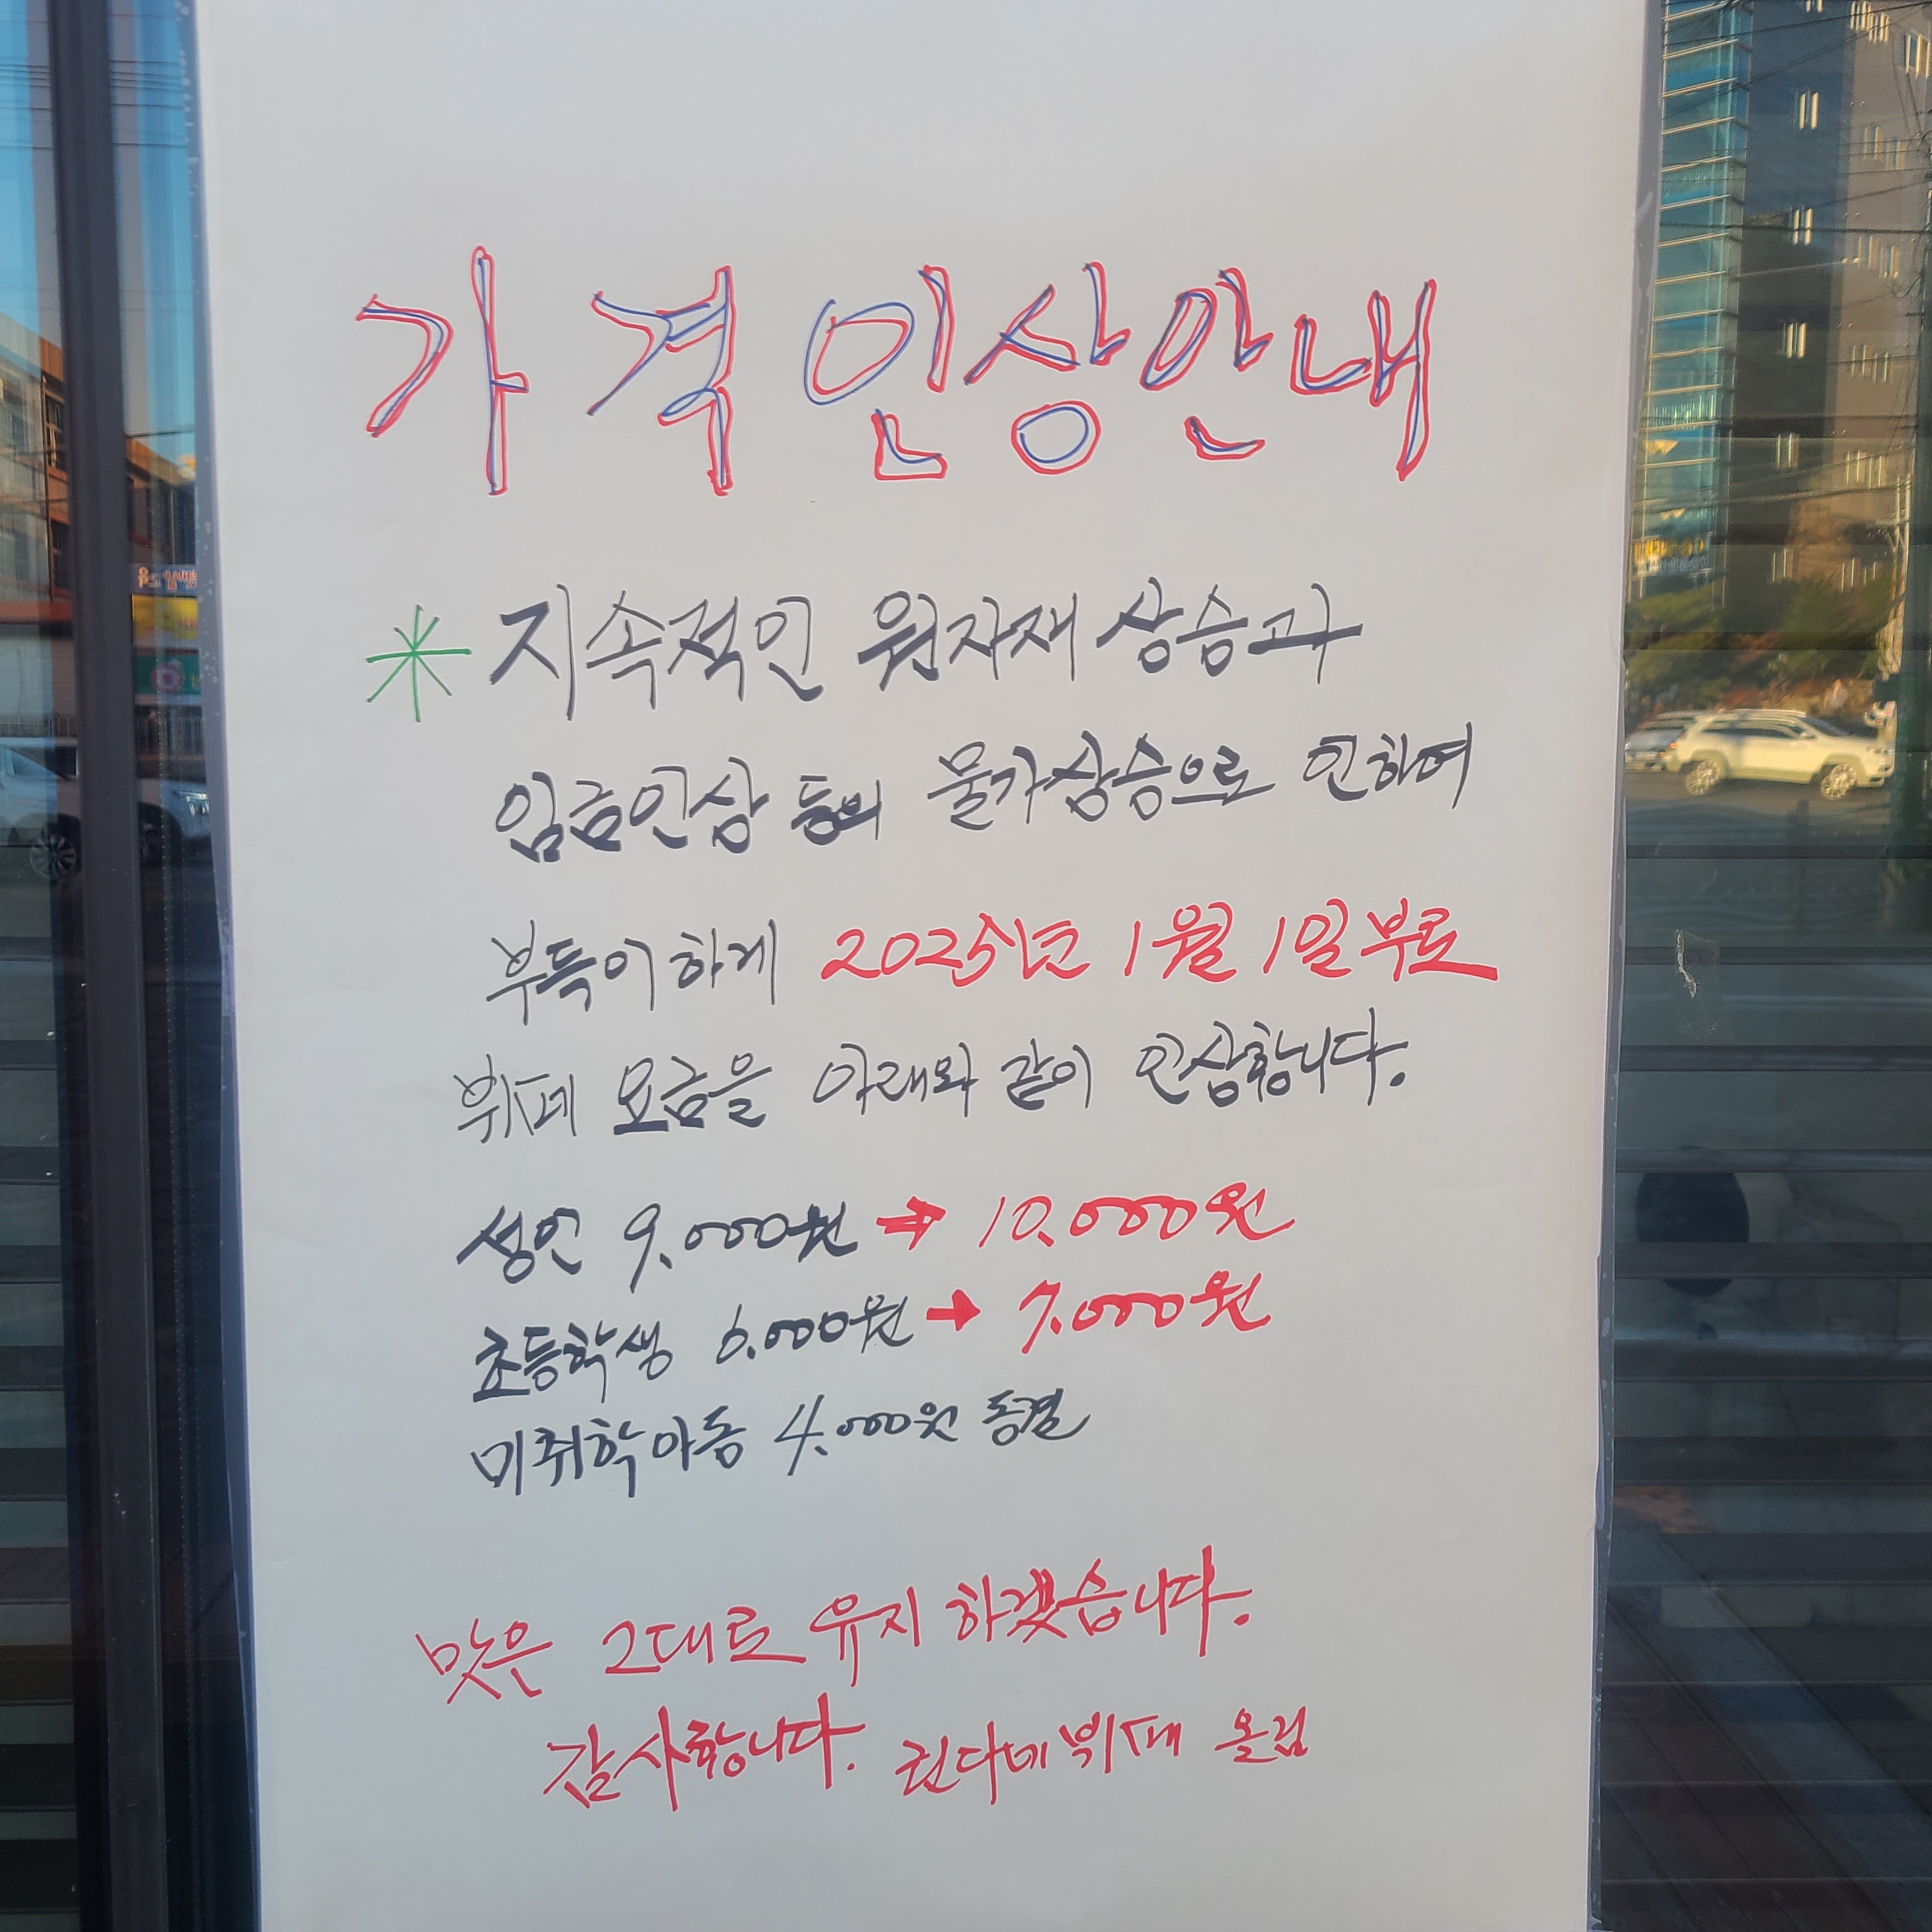 가격인상안내
* 지속적인 원자재 상승과
임금인상 등의 물가상승으로 인하여
부득이하게 2025년 1월 1일부로
뷔페 요금을 아래와 같이 인상합니다.
성인 9.000원 → 10.000원
초등학생 6.000원 → 7.000원
미취학아동 4.000원 동결
맛은 그대로 유지 하겠습니다.
감사합니다. 권다네뷔페 올림